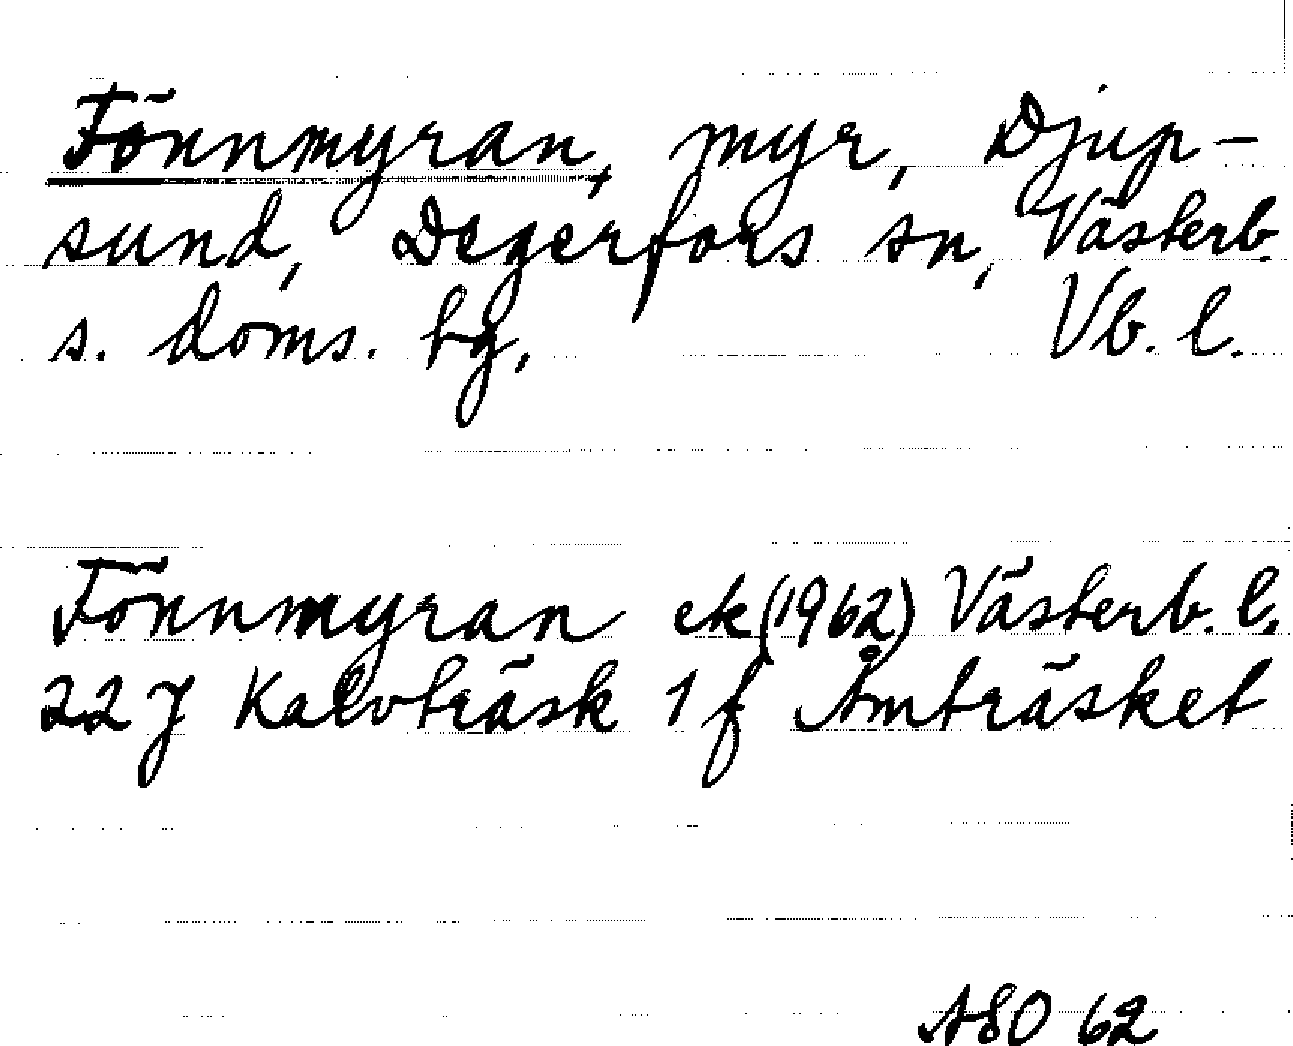 Fönnmyran, myr, Djup-
sund, Degerfors sn, Västerb.
s. doms. hg, Vb. l.
Fönnmyran ek (1962) Västerb. l.
22 J Kalvträsk 1 f Åmträsket
ASO 62